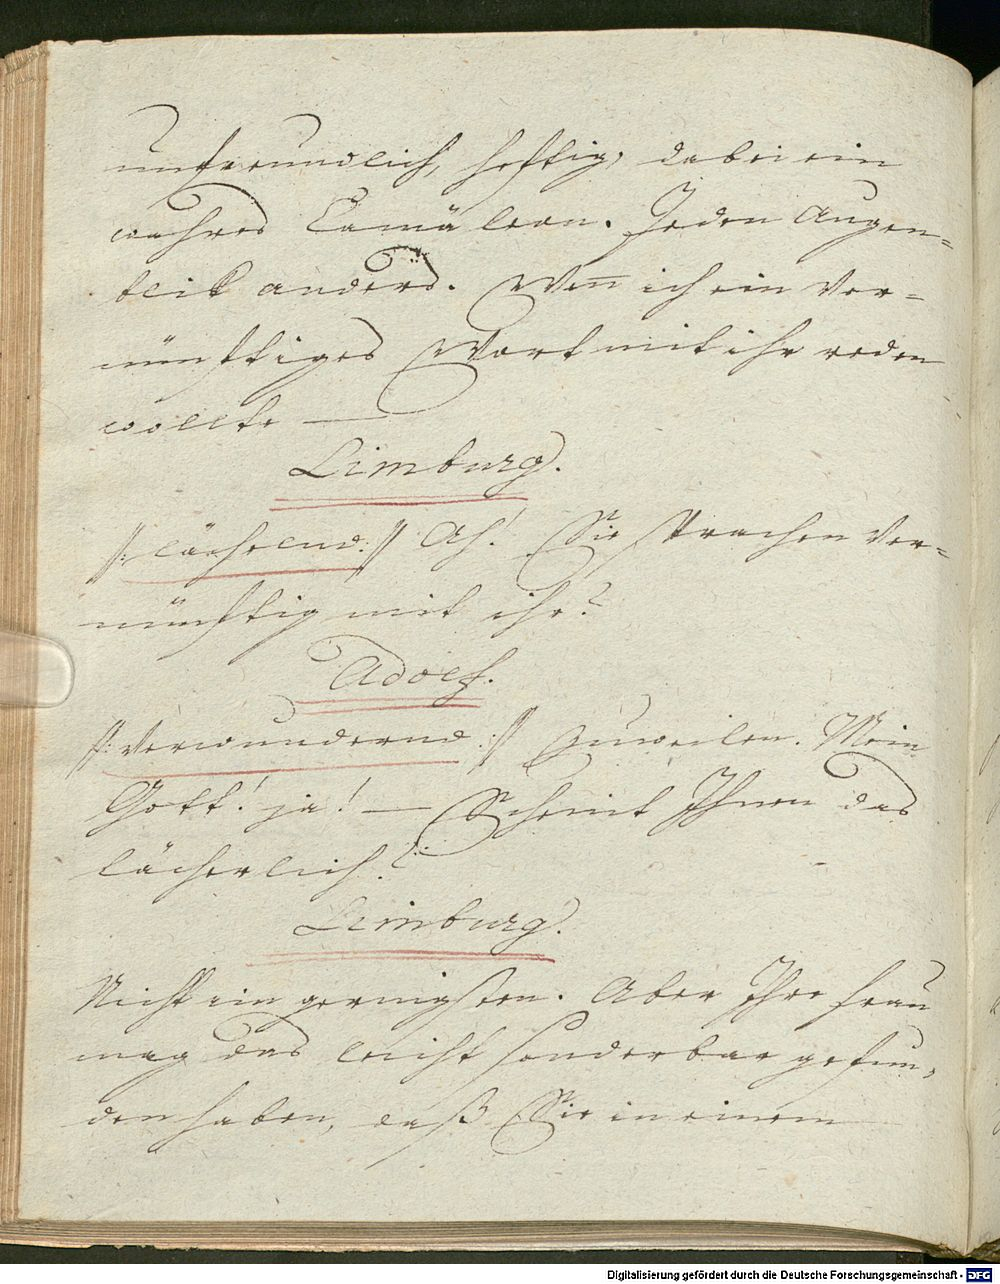 unfreundlich, heftig, dabei ein
wahres Camäleon. Jeden Augen=
blik anders. Wen̅ ich ein ver=
nünftiges Wort mit ihr reden
wollte —
Limburg.
/: lächelnd :/ Ah! Sie sprachen ver=
nünftig mit ihr?
Adolf.
/: verwundernd :/ Zuweilen. Mein
Gott! ja! — Scheint Ihnen das
lächerlich?
Limburg.
Nicht im geringsten. Aber Ihre Frau
mag das leicht sonderbar gefun=
den haben, daß Sie in einem
Digitalisierung gefördert durch die Deutsche Forschungsgemeinschaft - DFG